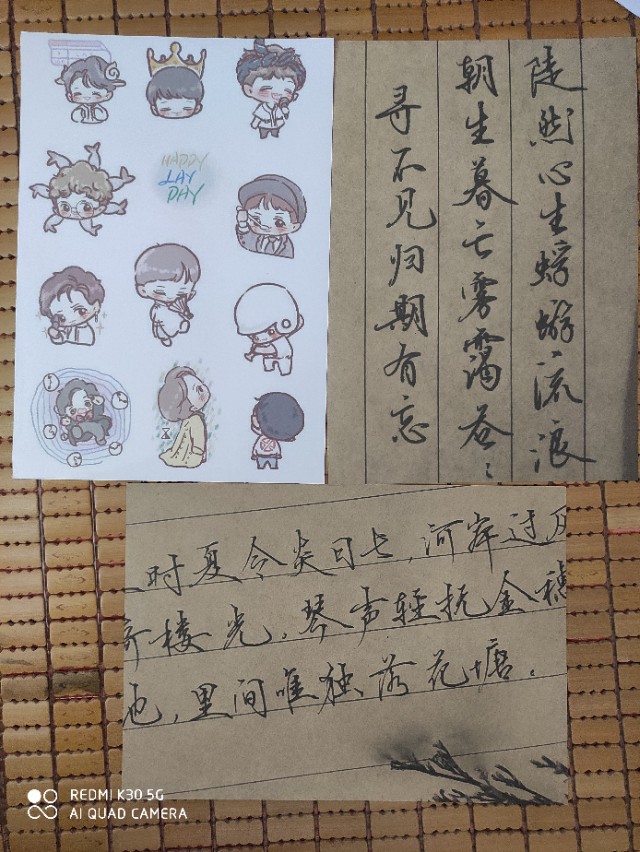 HAPPY
LAY
DAY
陡然心生蜉蝣流浪
朝生暮亡雾霭苍々
寻不见归期有忘
时夏令炎日七,河岸过
楼光,琴声轻抚金穗
也,里间唯独落花塘.
REDMI K30 5G
AI QUAD CAMERA